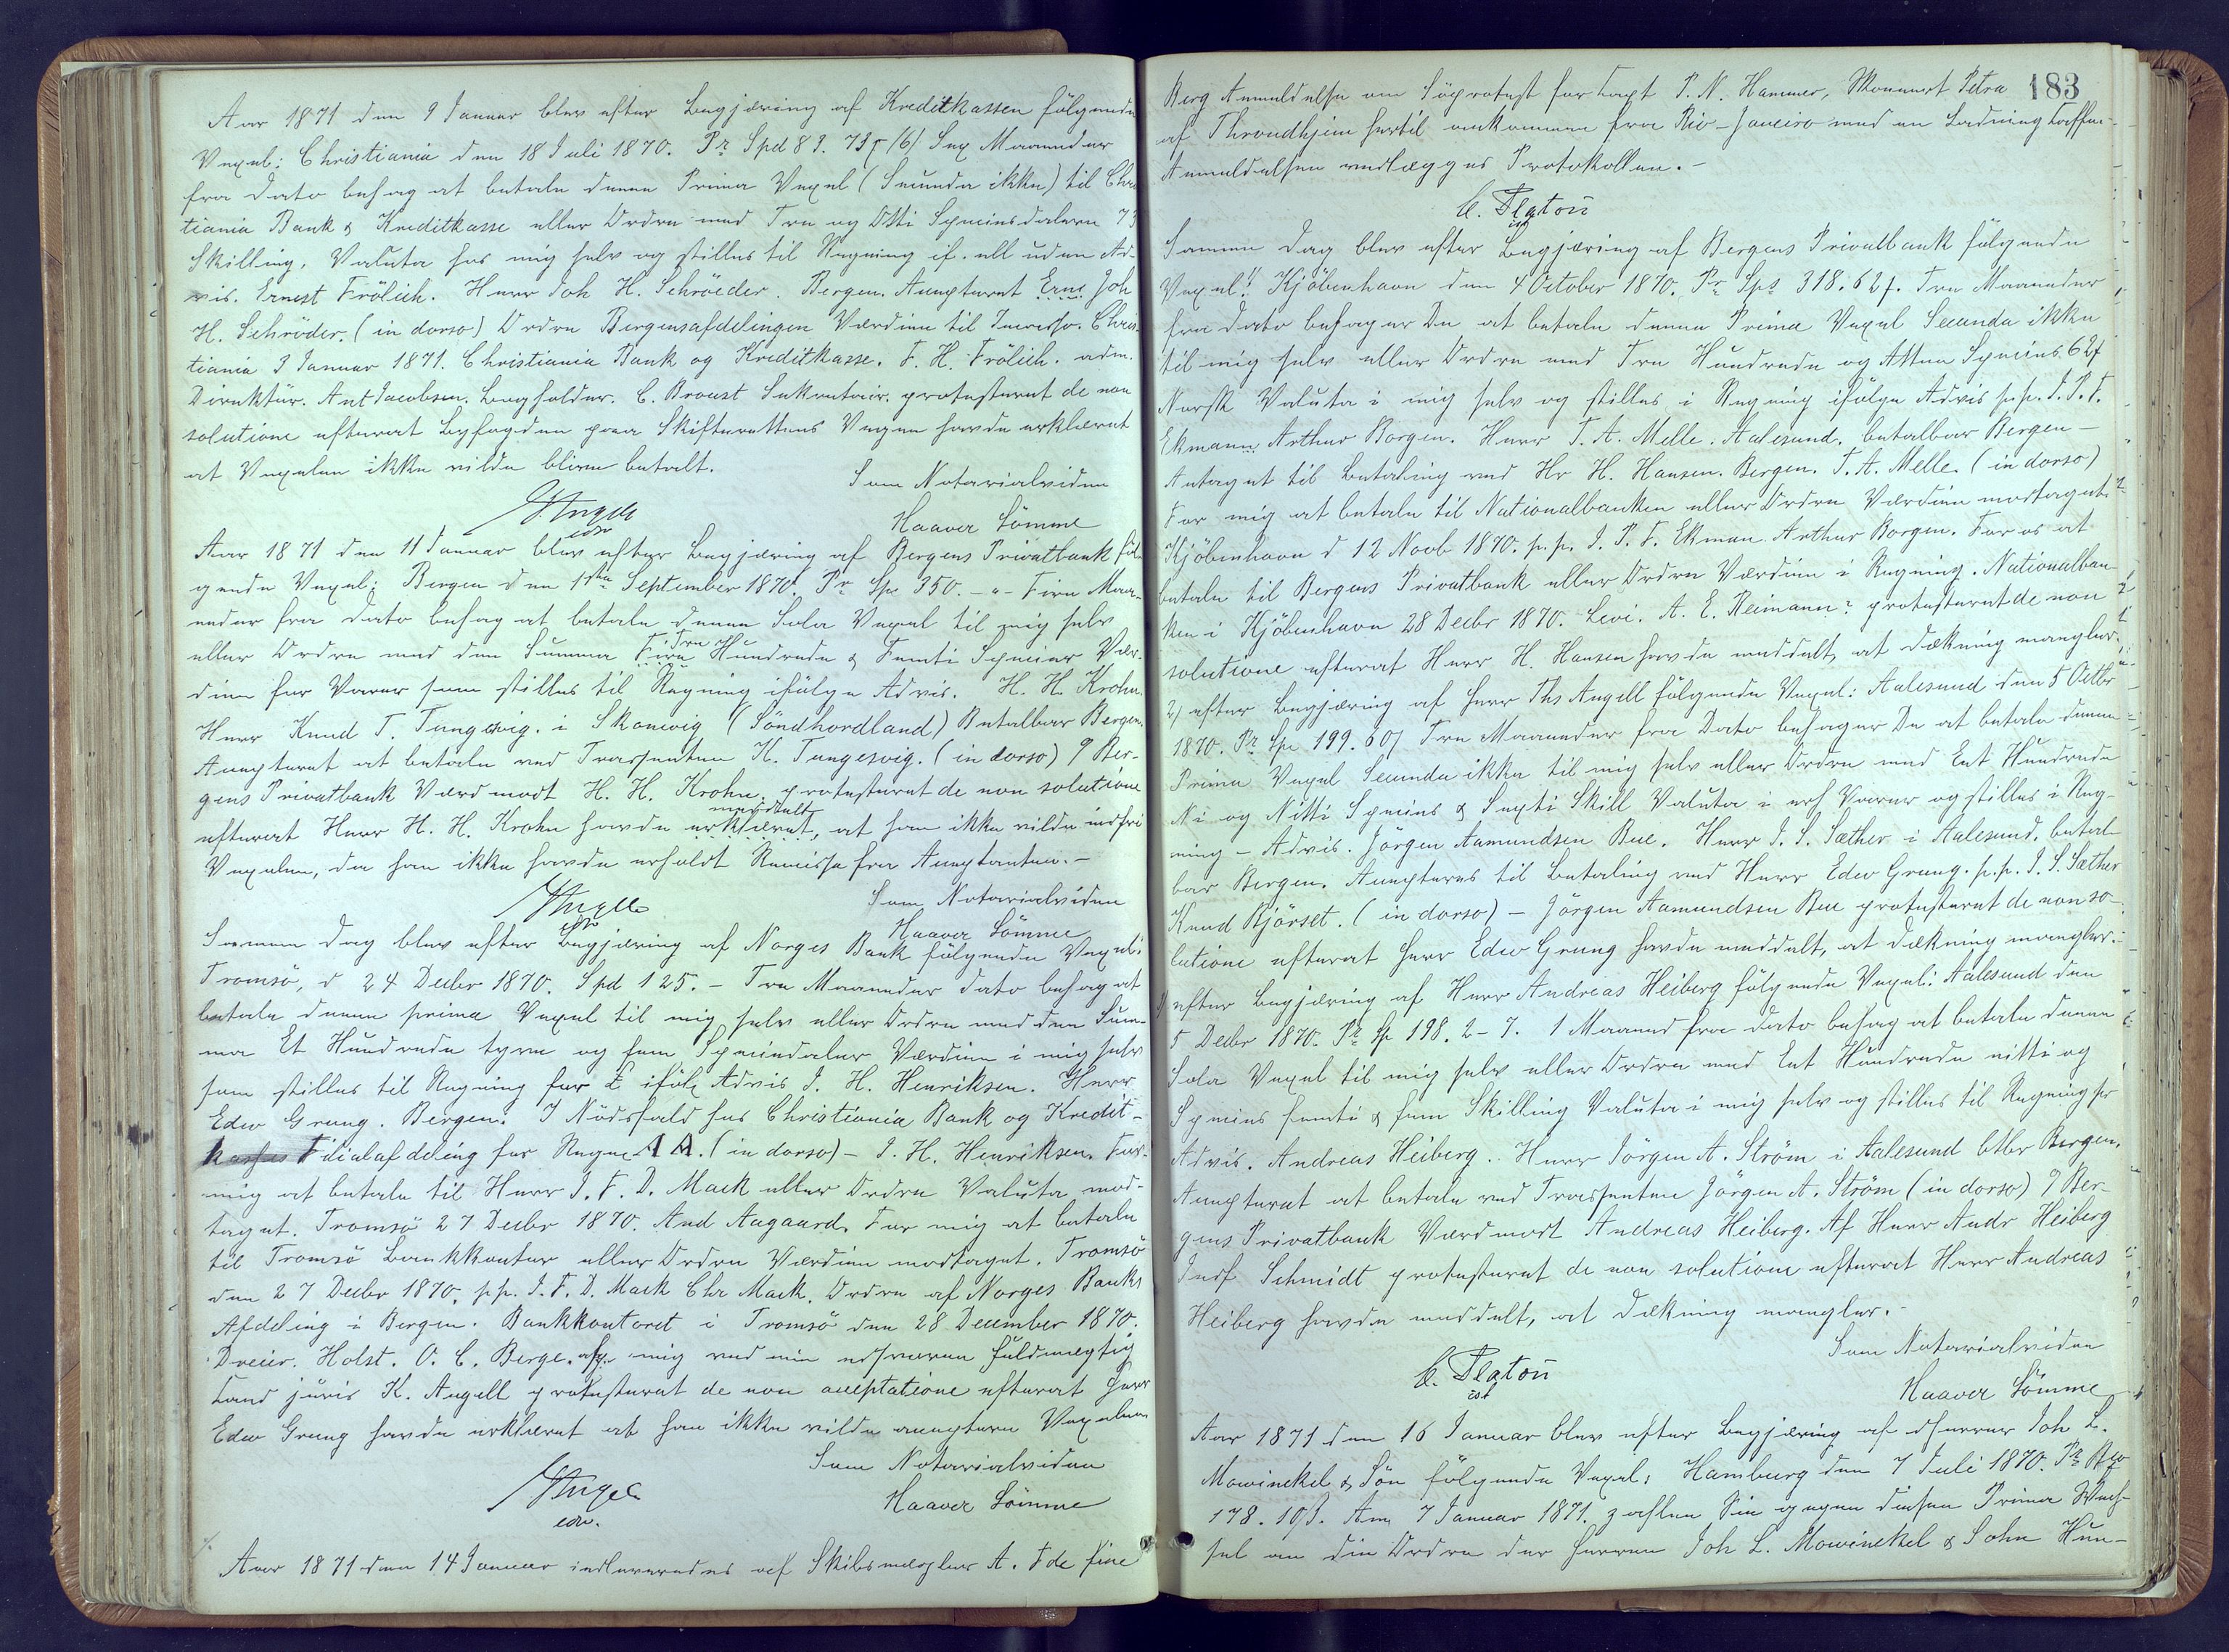 Aar 1871 den 9 Januar blev efter Begjæring af Kreditkassen følgende
Vexel: Christiania den 18 Juli 1870. Pr Spd 83. 73 β (6) Sex Maaneder
fra Dato behag at betale denne Prima Vexel (Secunda ikke) til Chris
tiania Bank & Kreditkasse eller Ordre med Tre og Otti Speciesdalere 73
Skilling, Valuta hos mig selv og stilles til Regning if. ell uden Ad-
vis. Ernest Frölich. Herr Joh H. Schröeder. Bergen. Accepteret Erns Joh
H. Schröder. (in dorso) Ordre Bergensafdelingen Værdien til Incasso. Chris-
tiania 3 Januar 1871. Christiania Bank og Kreditkasse. F. H. Frölich. adm.
Direktör. Ant Jacobsen. Bogholder. C. Broust Sekretair. protesteret de non
solutione efterat Byfogden paa Skifterettens Vegne havde erklæret
at Vexelen ikke vilde blive betalt.
Som Notarialvidne
Angell
cst
Haaver Sömme
Aar 1871 den 11 Januar blev efter Begjæring af Bergens Privatbank föl-
gende Vexel: Bergen den 1ste September 1870. Pr Sp 350. - " - Fire Maa-
neder fra Dato behag at betale denne Sola Vexel til mig selv
eller Ordre med den Summa Fire Tre Hundrede & Femti Species Vær-
dien for Varer som stilles til Regning ifölge Advis. H. H. Krohn.
Herr Knud T. Tungesvig. i Skonevig (Söndhordland) Betalbar Bergen.
Accepteret at betale ved Trassenten K. Tungesvig. (in dorso) / Ber-
gens Privatbank Værd modt H. H. Krohn. protesteret de non solutione
efterat Herr H. H. Krohn havde erklæret meddelt, at han ikke vilde indfri
Vexelen, da han ikke havde erholdt Remisse fra Acceptanten. -
Som Notarialvidne
Angell
cst
Haaver Sömme
Samme Dag blev efter Begjæring af Norges Bank følgende Vexel:
Tromsö, d 24 Decbr 1870. Spd 125. - Tre Maaneder Dato behag at
betale denne prima Vexel til mig selv eller Ordre med den Sum-
ma Et Hundrede tyve og fem Speciedaler Værdien i mig selv
som stilles til Regning for E ifölg Advis J. H. Henriksen. Herr
Edw Grung. Bergen. I Nödsfald hos Christiania Bank og Kredit-
kasses Filialafdeling for Regng A A. (in dorso) - J. H. Henriksen. For
mig at betale til Herr J. F. D. Mack eller Ordre Valuta mod-
taget. Tromsö 27 Decbr 1870. And Aagaard. For mig at betale
til Tromsö Bankkontor eller Ordre Værdien modtaget. Tromsö
den 27 Decbr 1870. p.p. J. F. D. Mack Chr Mack. Ordre af Norges Banks
Afdeling i Bergen. Bankkontoret i Tromsö den 28 December 1870.
Dreier. Holst. O. C. Berge. af mig ved min edsvorne Fuldmægtig
Cand juris K. Angell protesteret de non acceptatione efterat Herr
Edw Grung havde erklæret at han ikke vilde acceptere Vexelen
Som Notarialvidne
Angell
cst.
Haaver Sömme
Aar 1871 den 14 Januar indleveredes af Skibsmægler A. F de fine
183
Berg Anmeldelse om Söprotest for Capt P. N. Hammer, Skonnert Petra
af Throndhjem hertil ankommen fra Rio-Janeiro med en Ladning Caffe. -
Anmeldelsen vedlægges Protokollen. -
C. Platou
cst
Samme Dag blev efter Begjæring af Bergens Privatbank følgende
Vexel: Kjöbenhavn den 4 October 1870. Pr Sps 318. 62 β. Tre Maaneder
fra Dato behager De at betale denne Prima Vexel Secunda ikke
til mig selv eller Ordre med Tre Hundrede og Atten Species 62 β
Norsk Valuta i mig selv og stilles i Regning ifölge Advis p.p. J. P. F.
Ekmann Arthur Borgen. Herr T. A. Melle. Aalesund. betalbar Bergen -
Antaget til Betaling ved Hr H. Hansen. Bergen. T. A. Melle. (in dorso)
For mig at betale til Nationalbanken eller Ordre Værdien modtaget.
Kjöbenhavn d 12 Novb 1870. p.p. J. P. F. Ekman. Arthur Borgen. For os at
betale til Bergens Privatbank eller Ordre Værdien i Regning. Nationalban-
ken i Kjöbenhavn 28 Decbr 1870. Levi. A. E. Reimann? protesteret de non
solutione efterat Herr H. Hansen havde meddelt, at Dækning mangler.
2) efter Begjæring af Herr Ths Angell følgende Vexel: Aalesund den 5 Octbr
1870. Pr Spe 199. 60 β Tre Maaneder fra Dato behager De at betale denne
Prima Vexel Secunda ikke til mig selv eller Ordre med Eet Hundrede
Ni og Nitti Species & Sexti Skill Valuta i erh Varer og stilles i Reg-
ning - Advis. Jörgen Aamundsen Bue. Herr J. S. Sæther i Aalesund. betal-
bar Bergen. Accepteres til Betaling ved Herr Edw Grung. p.p. J. S. Sæther
Knud Björset. (in dorso) - Jörgen Aamundsen Bue protesteret de non so-
lutione efterat Herr Edw Grung havde meddelt, at Dækning mangler. -
3) efter Begjæring af Herr Andreas Heiberg følgende Vexel: Aalesund den
5 Decbr 1870. Pr Sp 198. 2 - 7. 1 Maaned fra Dato behag at betale denne
Sola Vexel til mig selv eller Ordre med Eet Hundrede nitti og
Species femti & fem Skilling Valuta i mig selv og stilles til Regning pr
Advis. Andreas Heiberg. Herr Jörgen A. Ström i Aalesund btlbr Bergen.
Accepteret at betale ved Trassenten Jörgen A. Ström (in dorso) / Ber-
gens Privatbank Værd modt Andreas Heiberg. Af Herr Andr Heiberg
Indf Schmidt protesteret de non solutione efterat Herr Andreas
Heiberg havde meddelt, at Dækning mangler. -
Som Notarialvidne
C. Platou
cst
Haaver Sömme
Aar 1871 den 16 Januar blev efter Begjæring af Dherrer Joh L.
Mowinckel & Sön følgende Vexel: Hamburg den 7 Juli 1870. Pr Bco
178. 10 β. Am 7 Januar 1871. zahlen Sie gegen diesen Prima Wech-
sel an die Ordre der Herren Joh L. Mowinckel & Sohn Hun-